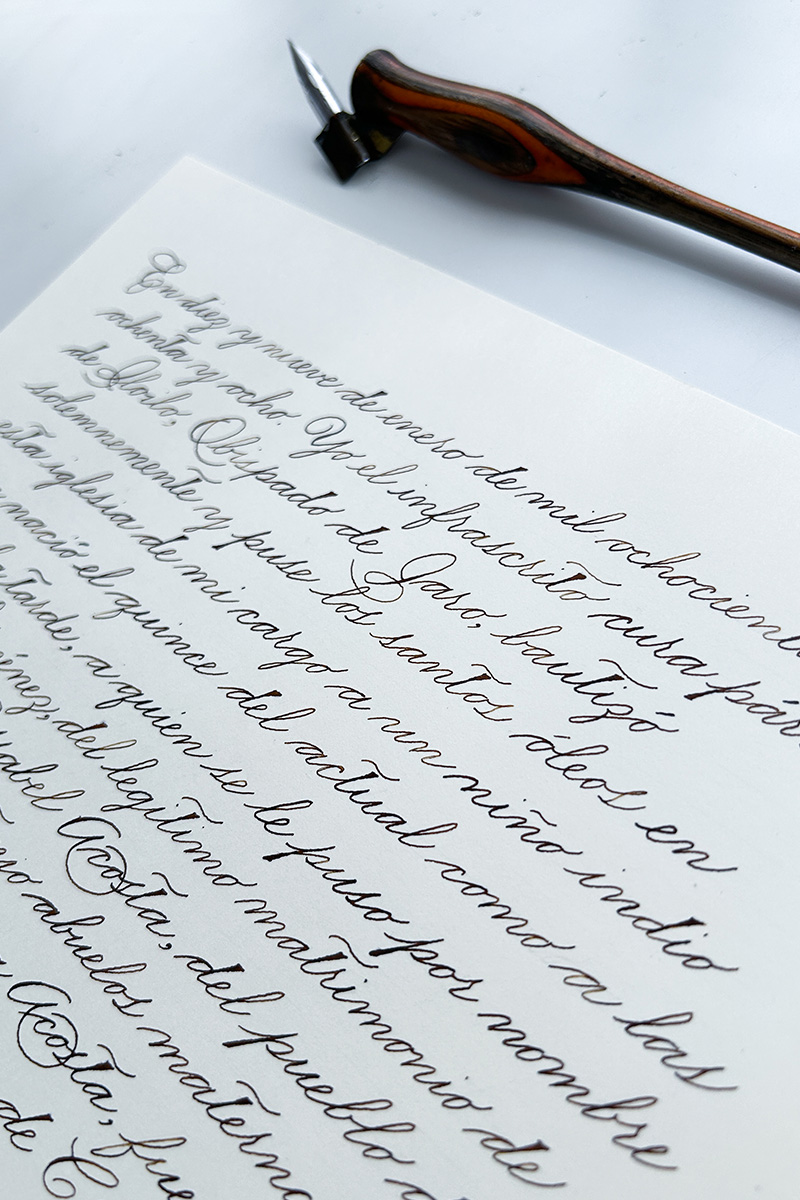 En diez y nueve de enero de mil ochocient
ochenta y ocho. Yo el infrascrito cura pár
de Iloilo, Obispado de Jaro, bautizó
solemnemente y puse los santos óleos en
esta iglesia de mi cargo a un niño indio
nació el quince del actual como a las
la tarde, a quien se le puso por nombre
énez, del legitimo matrimonio de
abel Acosta, del pueblo
abuelos materno
Acosta, fue
de C